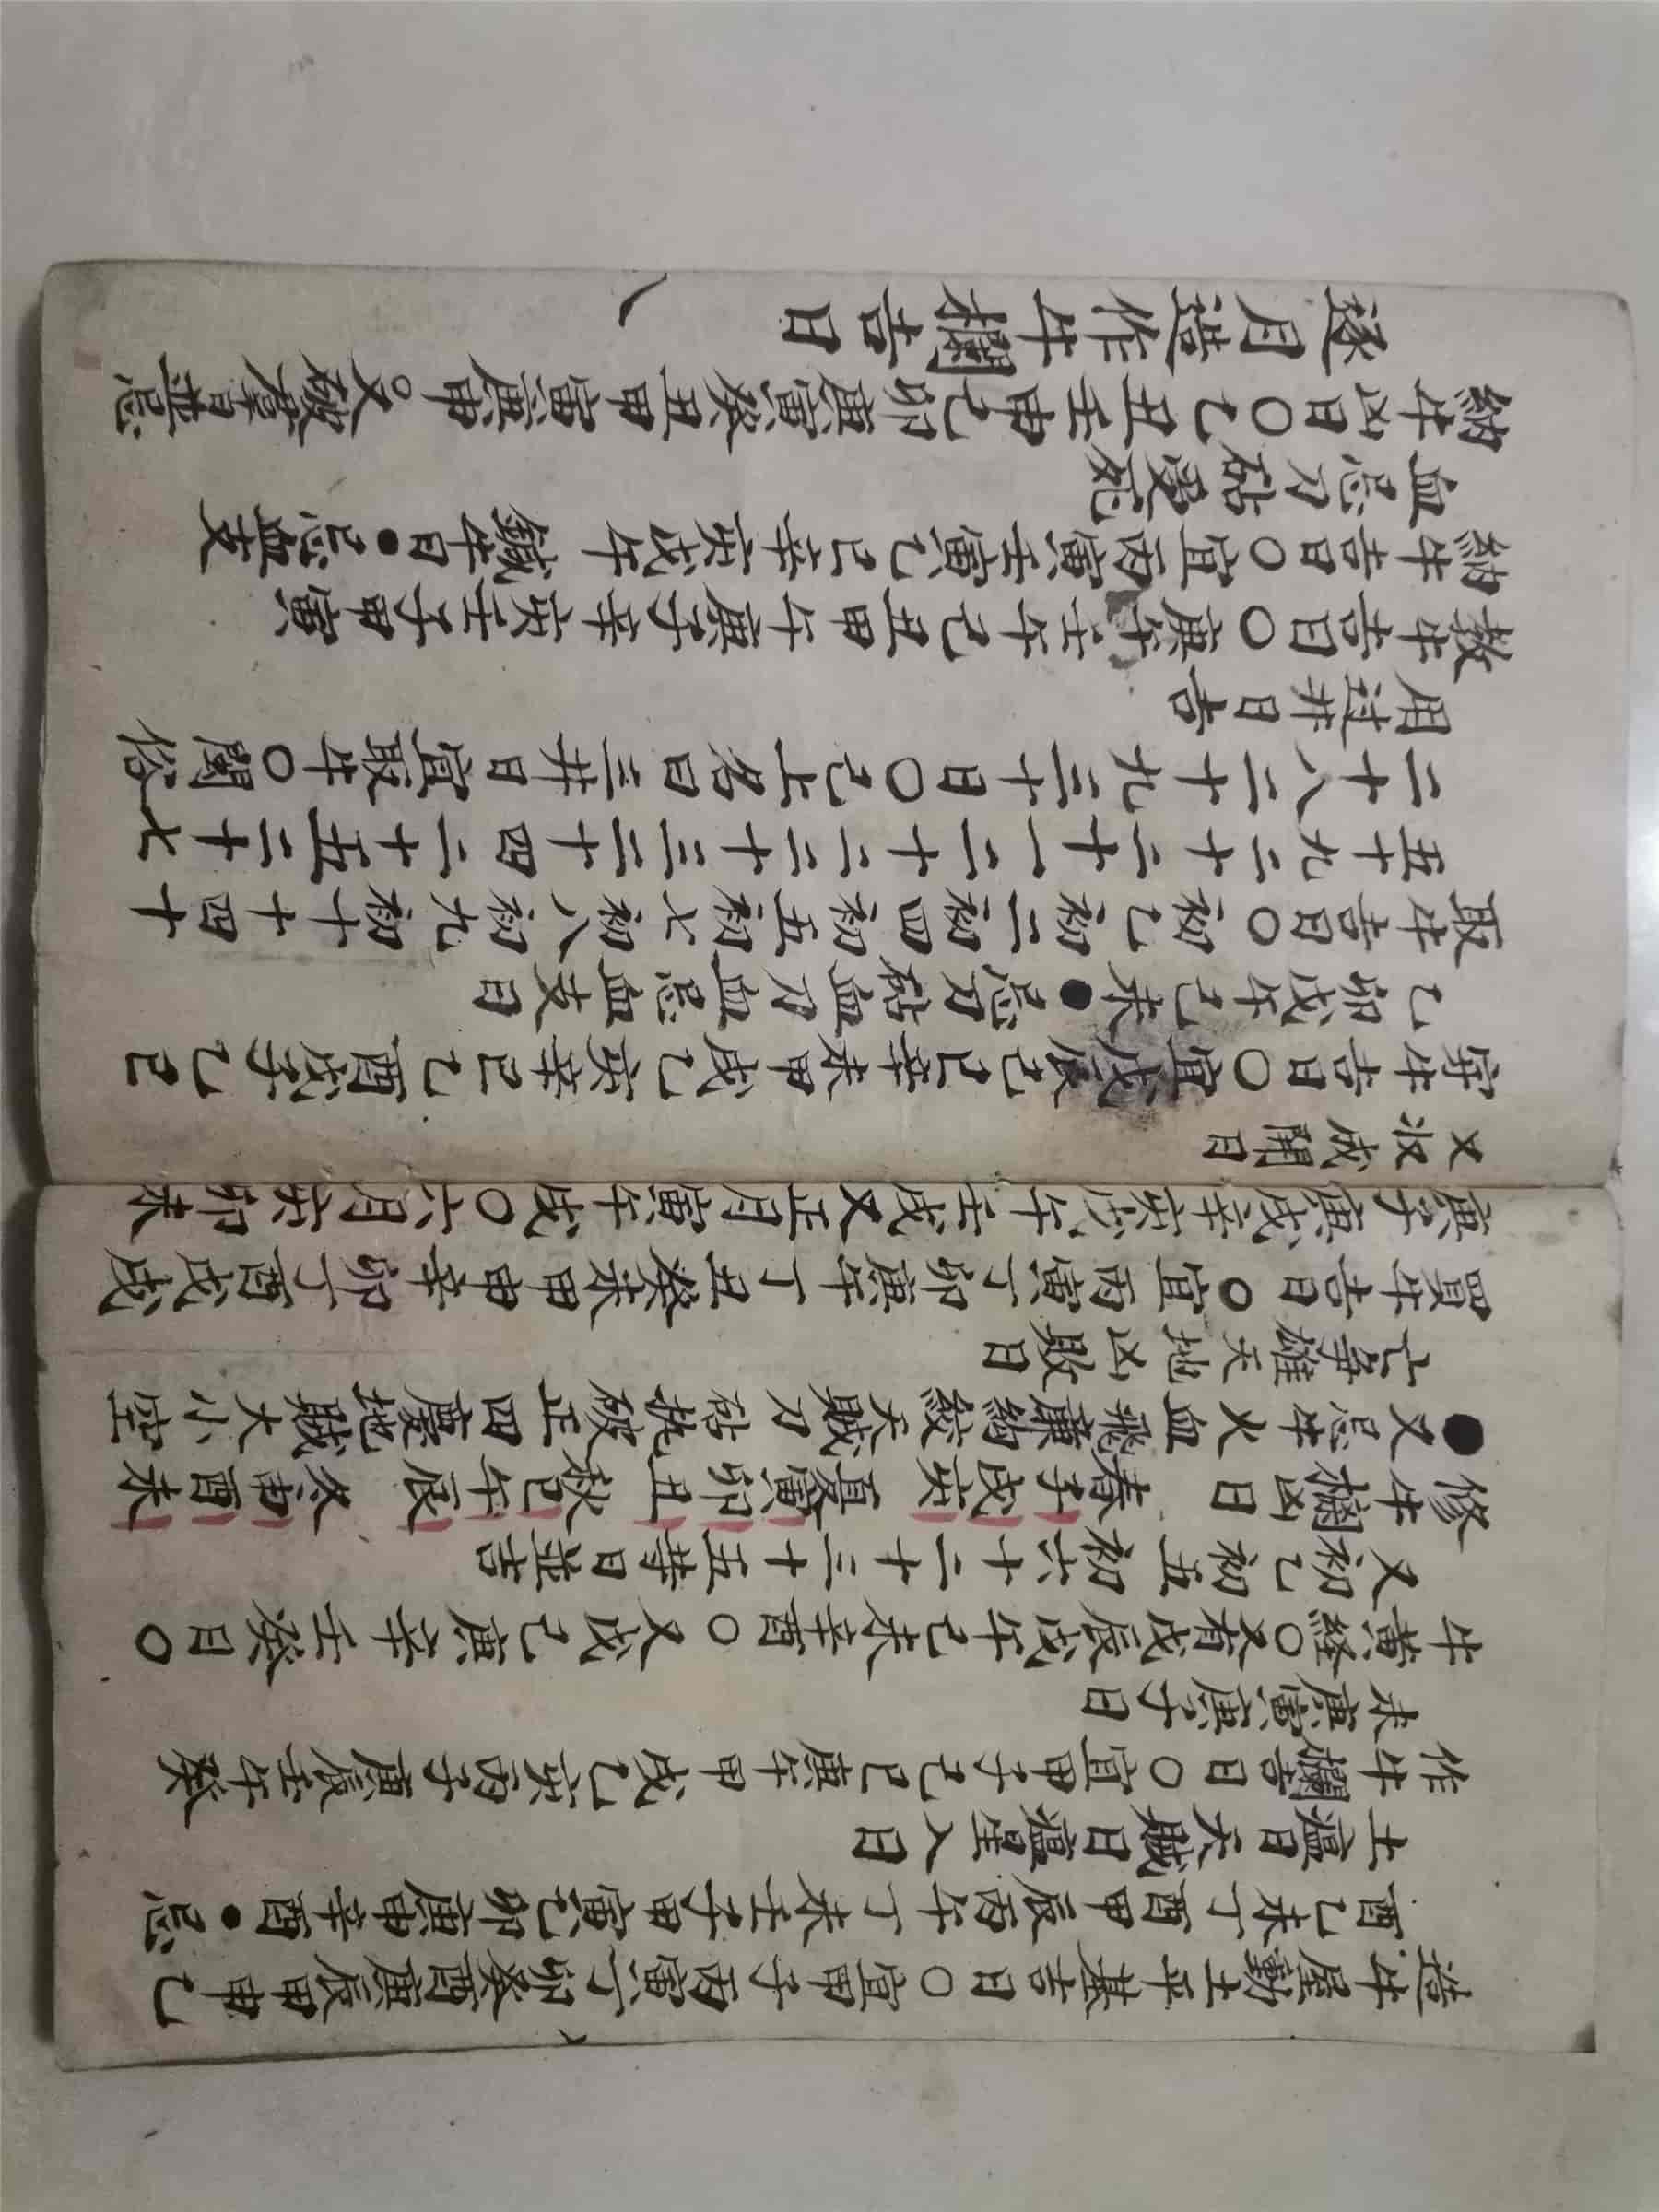 造牛屋動土平基吉日〇宜甲子丙寅丁卯癸酉庚辰甲申乙
酉乙未丁酉甲辰丙午丁未壬子甲寅己卯庚申辛酉●忌
土瘟日天賊日瘟星入日
作牛欄吉日〇宜甲子己巳庚午甲戌乙亥丙子庚辰壬午癸
未庚寅庚子日
牛黃經〇又有戊辰戊午己未辛酉〇又戊己庚辛壬癸日〇
又初乙初五初六十二十三十五等日並吉
修牛欄凶日 春子戌亥 夏寅卯丑 秋巳午辰 冬申酉未
●又忌牛火血飛廉勾絞天賊刀砧执破正四廢地賊大小空
亡爭雄天地凶敗日
買牛吉日〇宜丙寅丁卯庚午丁丑癸未甲申辛卯丁酉戊戌
庚子庚戌辛亥戊午壬戌又正月寅午戌〇六月亥卯未
又收成開日
穿牛吉日〇宜戊辰己巳辛未甲戌乙亥辛巳乙酉戊子乙巳
乙卯戊午己未●忌刀砧血刀血忌血支日
取牛吉日〇初乙初二初四初五初七初八初九初十十四十
五十九二十二十一二十二二十三二十四二十五二十七
二十八二十九三十日〇己上名曰三井日宜取牛〇閩俗
用过井日吉
教牛吉日〇庚午壬午己丑甲午庚子辛亥壬子甲寅
納牛吉日〇宜丙寅壬寅乙巳辛亥戊午 鍼牛日●忌血支
血忌刀砧受死
納牛凶日〇乙丑壬申己卯庚寅癸丑甲寅庚申〇又破羣皆並忌
逐月造作牛欄吉日